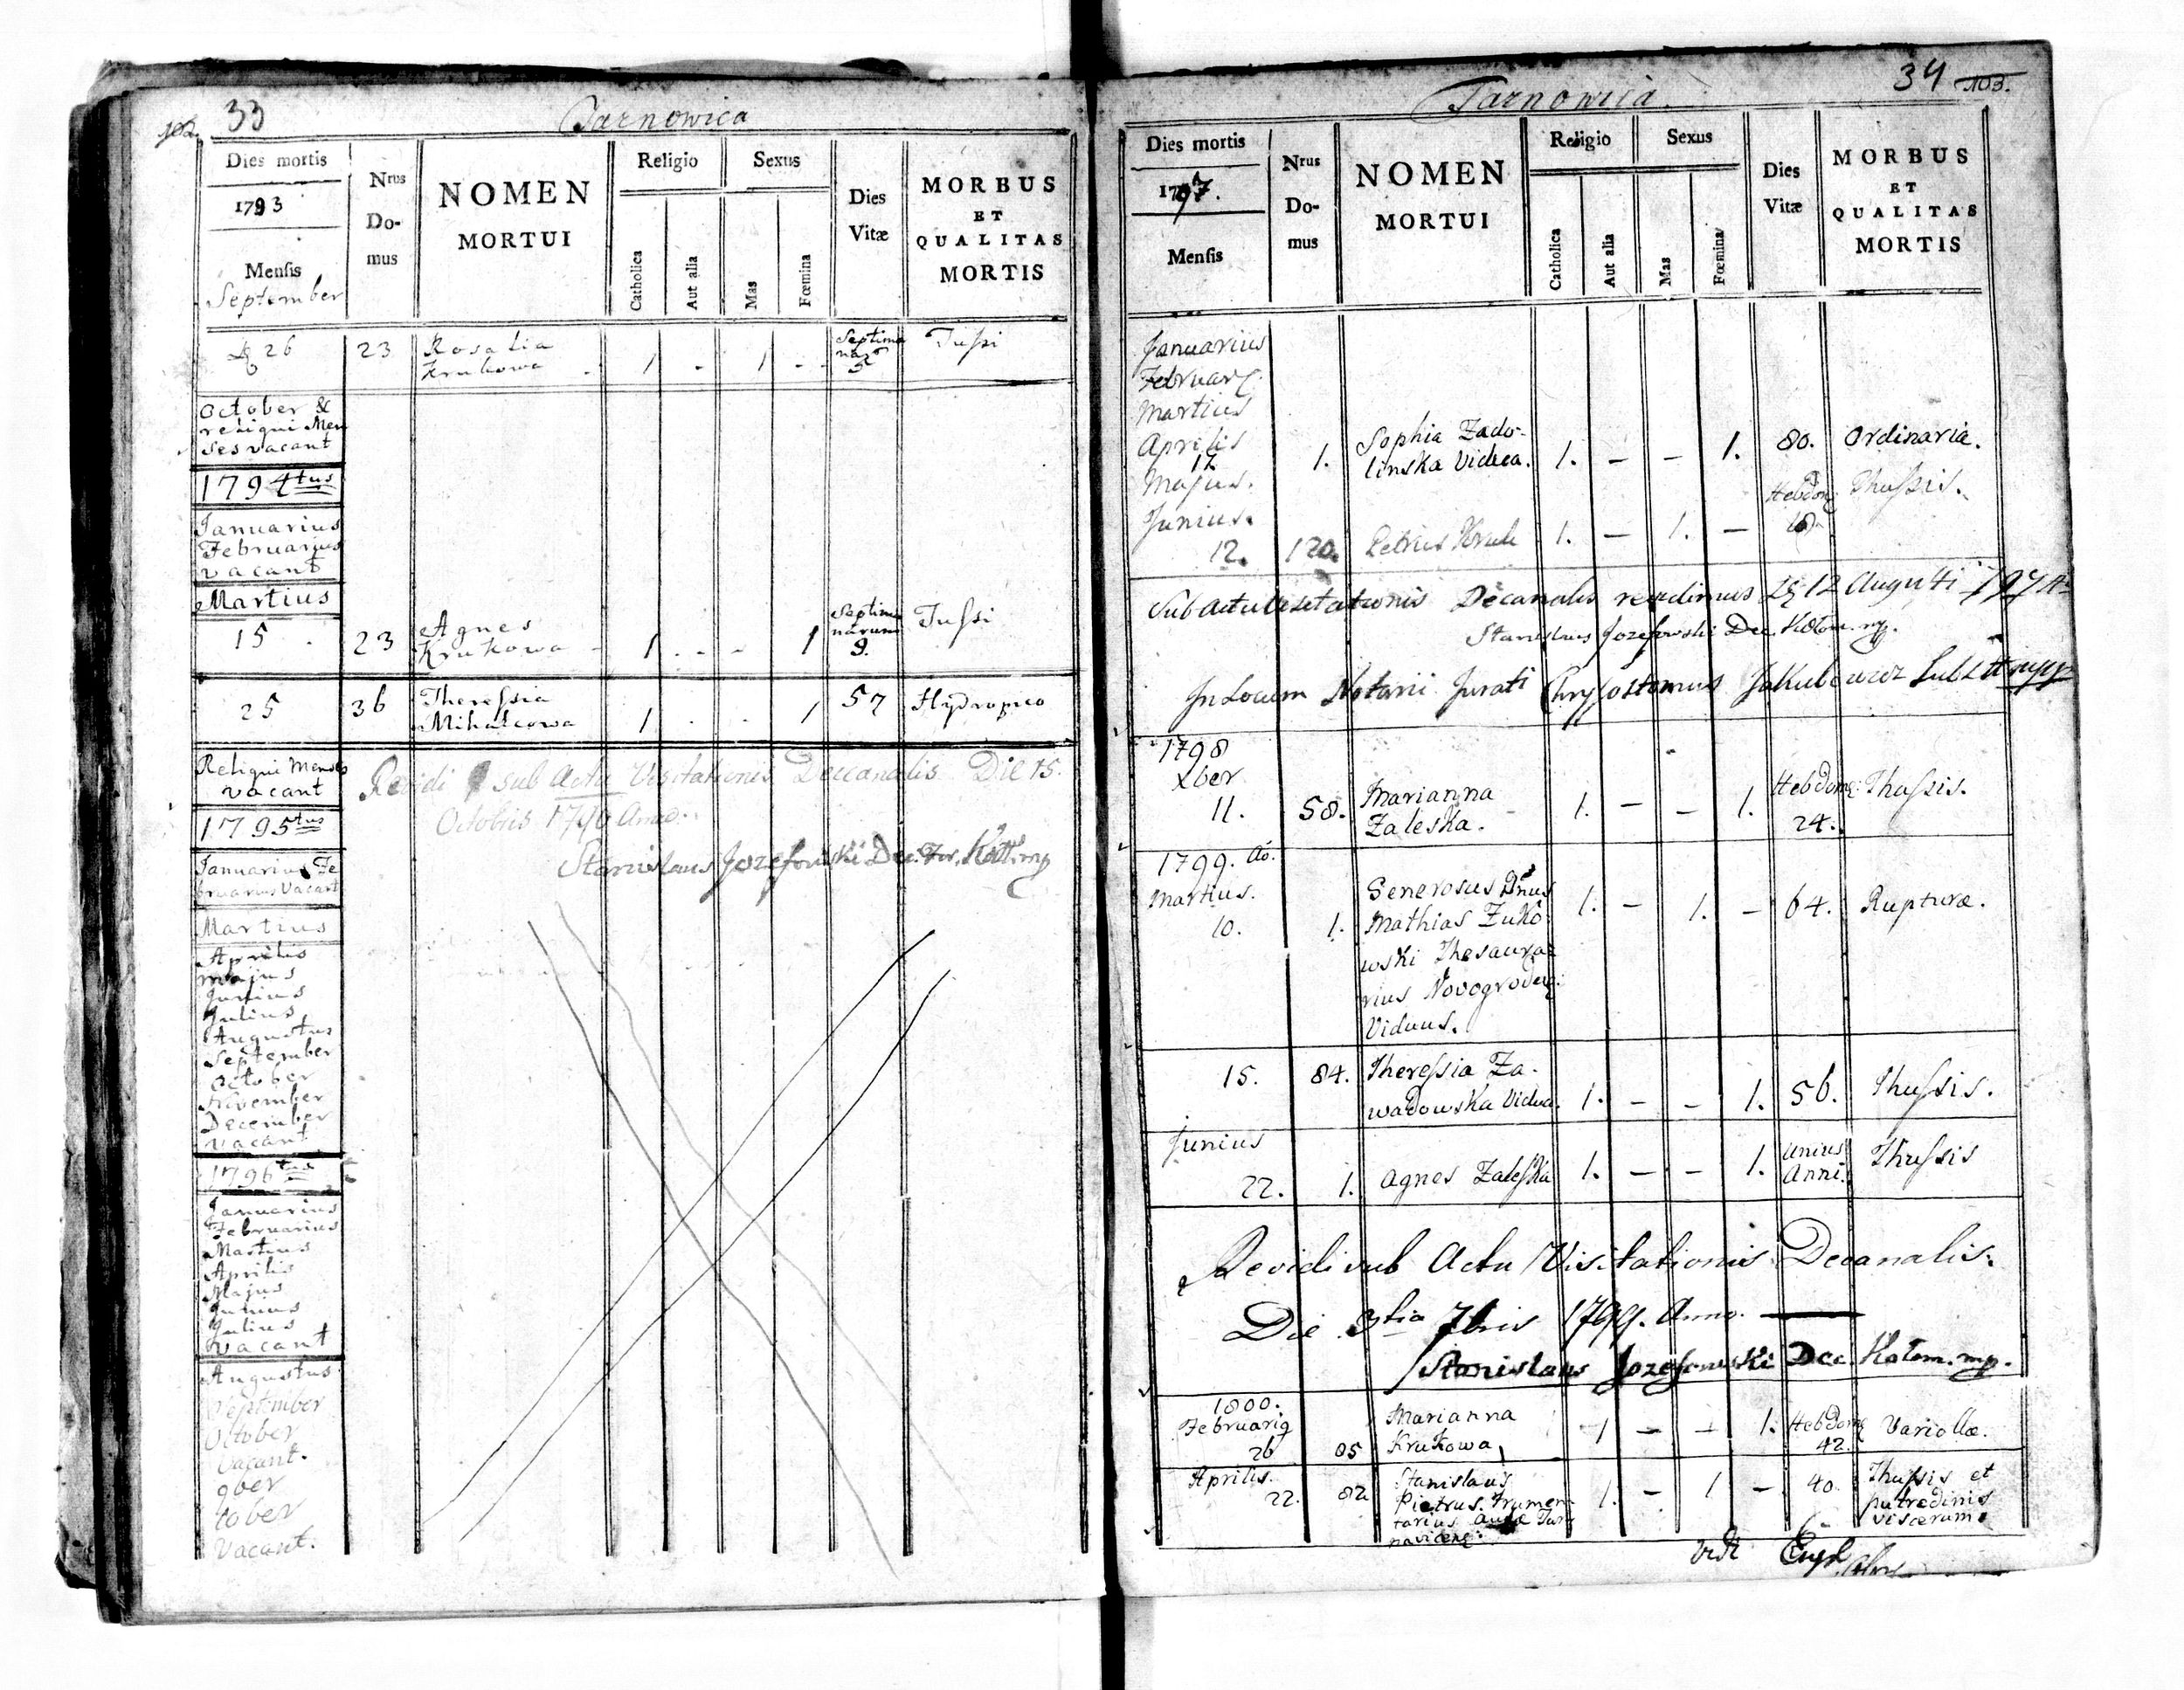 33
Tarnowica
Dies mortis
1793
Mensis
September
Nrus
Do-
mus
NOMEN
MORTUI
Religio
Catholica
Aut alia
Sexus
Mas
Fœmina
Dies
Vitæ
MORBUS
ET
QUALITAS
MORTIS
26 23 Rosalia
Krukowa 1 - 1 - 5 Tussi
October &
reliqui Men
ses vacant
1794tus
Januarius
Februarius
vacant
Martius
15 23 Agnes
Krukowa - 1 - - 1 Septima
narum
9. Tussi
25 36 Theressia
Mihalcowa 1 - - 1 57 Hydropico
Reliqui Menses
vacant
Revidi sub Actu Visitationis Decanalis Die 15.
Octobris 1796 Anno.
Stanislaus Jozefowski Dec. For. Kołł. mp
1795tus
Januarius Fe
bruarius Vacant
Martius
Aprilis
majus
Junius
Julius
Augustus
September
October
November
December
vacant
1796tus
Januarius
Februarius
Martius
Aprilis
Majus
Junius
Julius
vacant
Augustus
September
October
Vacant.
9ber
10ber
Vacant.
34 103.
Tarnowica.
Dies mortis
1797.
Mensis
Nrus
Do-
mus
NOMEN
MORTUI
Religio
Catholica
Aut alia
Sexus
Mas
Fœmina
Dies
Vitæ
MORBUS
ET
QUALITAS
MORTIS
Januarius
Februarq.
Martius
Aprilis
12 1. Sophia Zado-
linska Vidua. 1. - - 1. 80. Ordinaria.
Majus.
Junius.
12. 120. Petrus Kruk 1. - 1. - Hebdom: Thussis.
Sub actu visitationis Decanalis revidimus 12 Augusti 1797
Stanislaus Jozefowski Dec. Kołom. mp.
In Locum Notarii Jurati Chrysostomus Jakubowicz
1798
Xber
11. 58. Marianna
Zaleska. 1. - - 1. Hebdom:
24. Thussis.
1799. Ao.
Martius.
10. 1. Generosus Dnus
Mathias Zuko
wski Thesaura-
rius Novogroden:
Viduus. 1. - 1. - 64. Rupturæ.
15. 84. Theressia Za-
wadowska Vidua. 1. - - 1. 56. Thussis.
Junius
22. 1. Agnes Zaleska 1. - - 1. Unius
Anni. Thussis
Revidi sub Actu Visitationis Decanalis.
Die 3tia 7bris 1799. Anno.
Stanislaus Jozefowski Dec. Kołom. mp.
1800.
Februariq
26 85 Marianna
Krukowa, 1 - - 1. Hebdom
42. Variollæ.
Aprilis.
22. 82 Stanislaus
Pietrus. Frumen-
tarius Aulæ Tar
navicens: 1. - 1 - 40. Thussis et
putredinis
viscerum.
Vidt